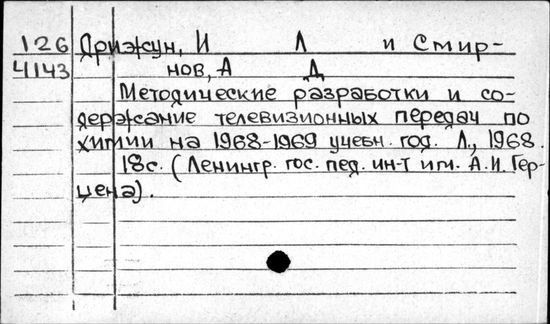 126 Дрижун, И Л и Смир-
4143 нов, А Д
Методические разработки и со-
держание телевизионных передач по
химии на 1968-1969 учебн. год. Л., 1968.
18с. (Ленингр. гос. пед. ин-т им. А.И. Гер-
цена).